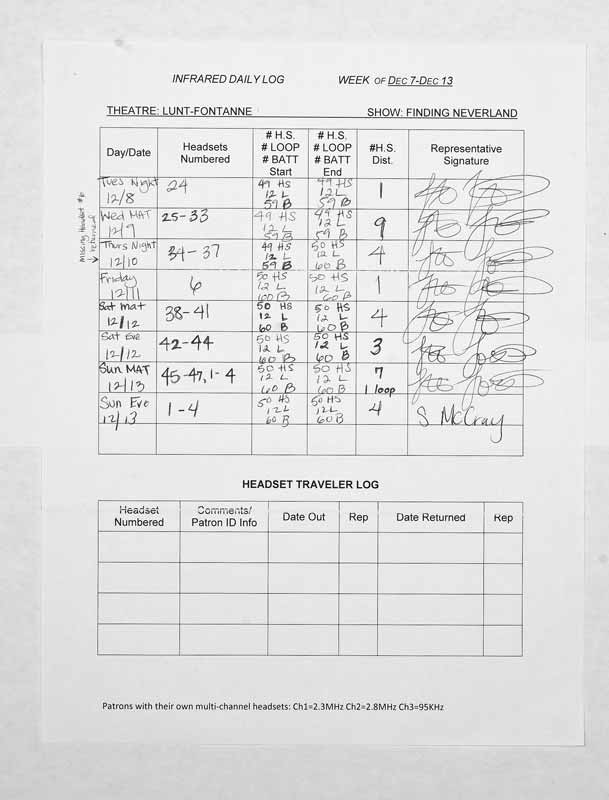 INFRARED DAILY LOG WEEK OF DEC 7-DEC 13
THEATRE: LUNT-FONTANNE SHOW: FINDING NEVERLAND
Day/Date Headsets Numbered # H.S. # LOOP # BATT Start # H.S. # LOOP # BATT End #H.S. Dist. Representative Signature
Tues Night 12/8 24 49 HS 12 L 59 B 49 HS 12 L 59 B 1
Wed MAT 12/9 25-33 49 HS 12 L 59 B 49 HS 12 L 59 B 9
Missing Headset
returned
Thurs Night 12/10 34-37 49 HS 12 L 59 B 50 HS 12 L 60 B 4
Friday 12/11 6 50 HS 12 L 60 B 50 HS 12 L 60 B 1
Sat mat 12/12 38-41 50 HS 12 L 60 B 50 HS 12 L 60 B 4
Sat Eve 12/12 42-44 50 HS 12 L 60 B 50 HS 12 L 60 B 3
Sun MAT 12/13 45-47, 1-4 50 HS 12 L 60 B 50 HS 12 L 60 B 7 1 loop
Sun Eve 12/13 1-4 50 HS 12L 60 B 50 HS 12L 60 B 4 S McCray
HEADSET TRAVELER LOG
Headset Numbered Comments/ Patron ID Info Date Out Rep Date Returned Rep
Patrons with their own multi-channel headsets: Ch1=2.3MHz Ch2=2.8MHz Ch3=95KHz